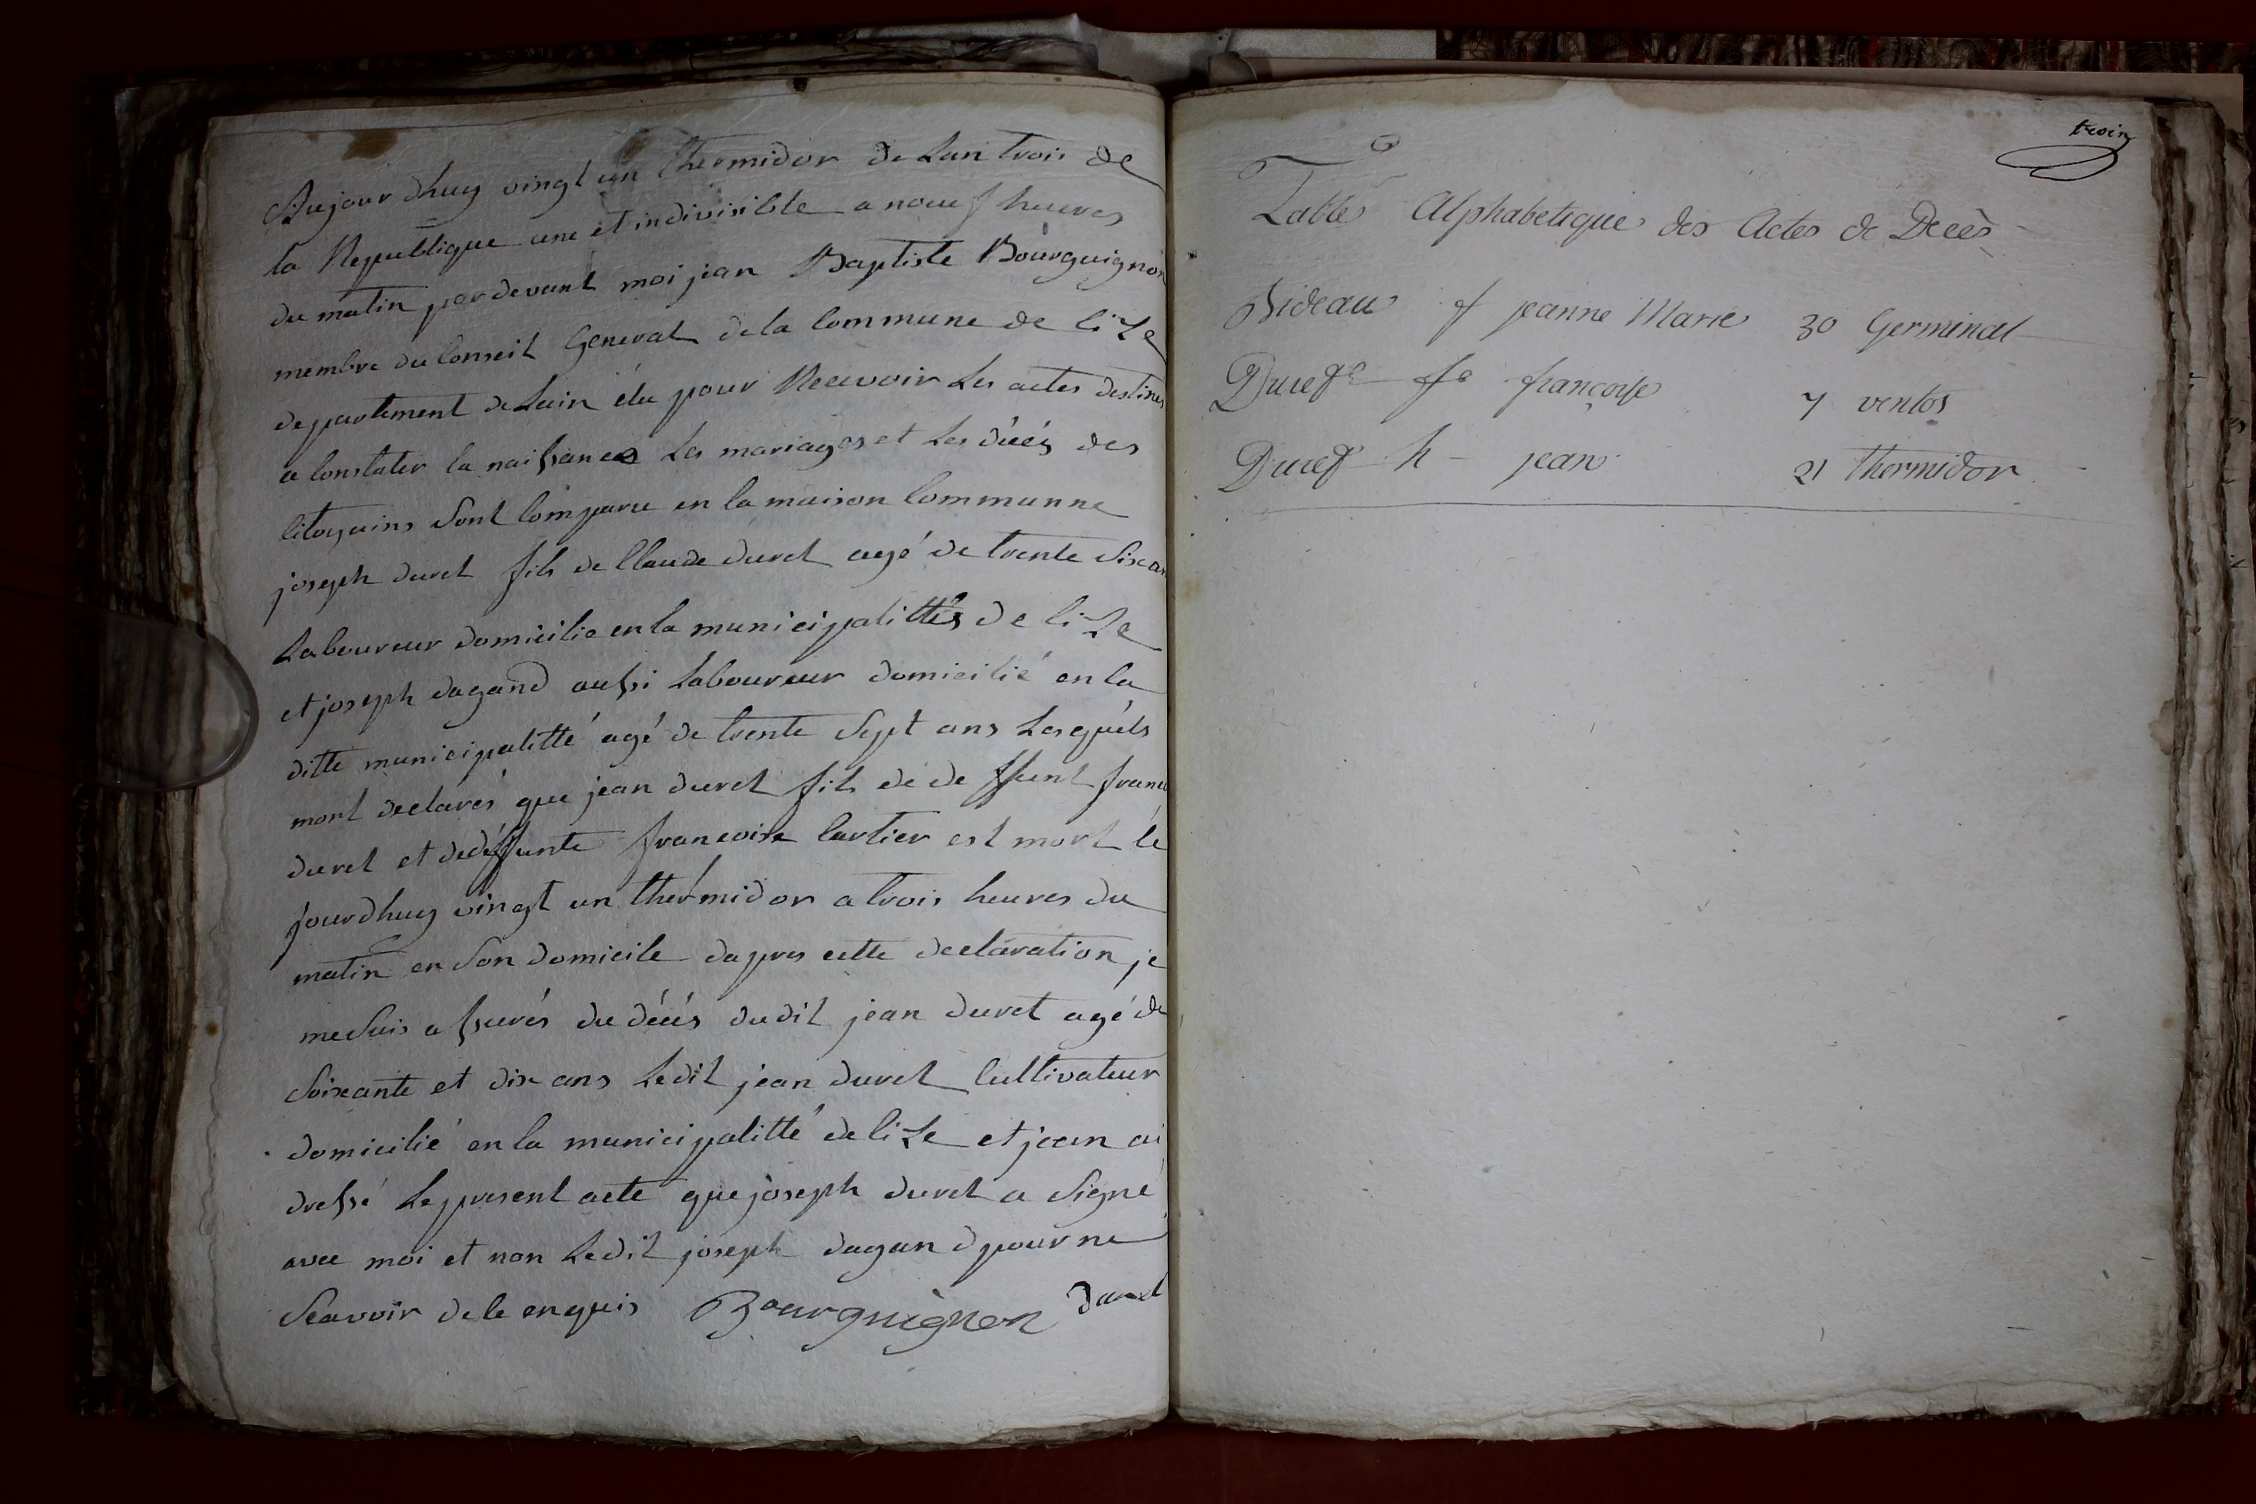 Aujourdhuy vingt un thermidor de Lan trois de
la Republique une et indivisible a neuf heures
du matin pardevant moi jean Baptiste Bourguignon
membre du Conseil General de la Commune de liZe
departement de Lain élu pour Recevoir Les actes destines
a Constater la naissance Les mariages et Les décés des
Citoyains Sont Comparu en la maison Communne
joseph duret fils de Claude duret agé de trente Six an
Laboureur domicilie en la municipalittés de liZe
et joseph dagand aussi Laboureur domicilié en la
ditte municipalitté agé de trente Sept ans Lesquéls
mont declarés que jean duret fils de deffunt
duret et dedéffunte francoise Cartier est mort le
jourdhuy vingt un thermidor a trois heures du
matin en Son domicile dapres cette declaration je
me Suis assurés du décés dudit jean duret agé de
Soixante et dix ans Ledit jean duret Cultivateur
domicilié en la municipalitté de liZe et jean ai
dressé Le present acte que joseph duret a Signé
avec moi et non Ledit joseph dagand pour ne
Scavoir de le enquis Bourguignon duret
trois
Table Alphabetique des Actes de Decès
Bideau f jeanne Marie 30 Germinal
Duret fe françoise 7 ventos
Duret h jean 21 thermidor